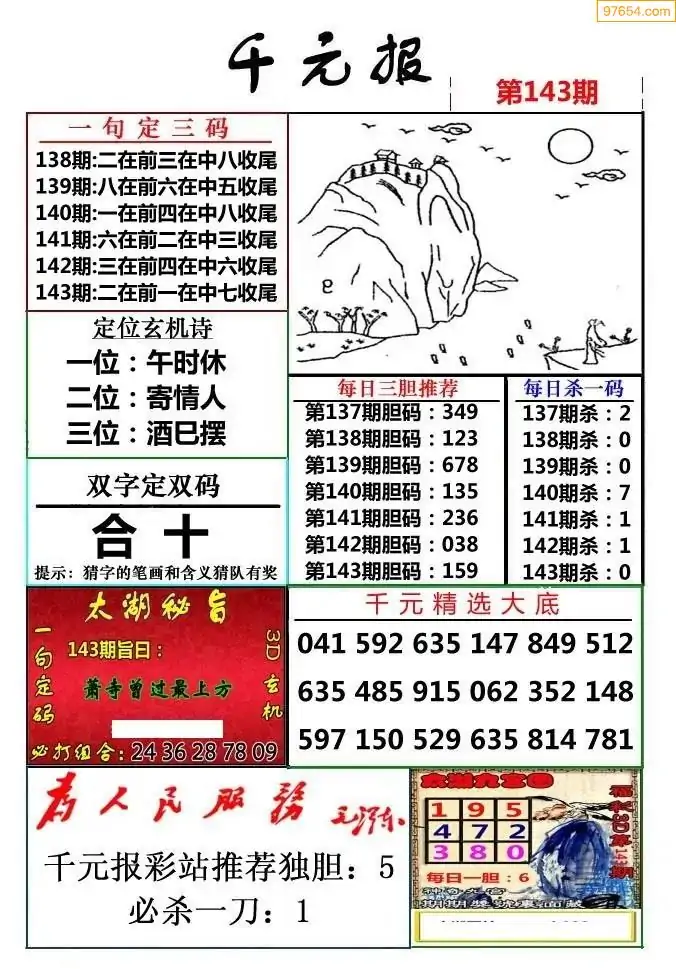 97654.com
千元报
第143期
一句定三码
138期:二在前三在中八收尾
139期:八在前六在中五收尾
140期:一在前四在中八收尾
141期:六在前二在中三收尾
142期:三在前四在中六收尾
143期:二在前一在中七收尾
定位玄机诗
一位：午时休
二位：寄情人
三位：酒巳摆
双字定双码
合十
提示：猜字的笔画和含义猜队有奖
每日三胆推荐
第137期胆码：349
第138期胆码：123
第139期胆码：678
第140期胆码：135
第141期胆码：236
第142期胆码：038
第143期胆码：159
每日杀一码
137期杀：2
138期杀：0
139期杀：0
140期杀：7
141期杀：1
142期杀：1
143期杀：0
太湖秘旨
一句定码
143期旨曰：
萧寺曾过最上方
3D玄机
必打组合：24 36 28 78 09
千元精选大底
041 592 635 147 849 512
635 485 915 062 352 148
597 150 529 635 814 781
为人民服务
毛泽东
千元报彩站推荐独胆：5
必杀一刀：1
太湖九宫图
1 9 5
4 7 2
3 8 0
福彩3D第143期
每日一胆：6
期期奬號裏面藏